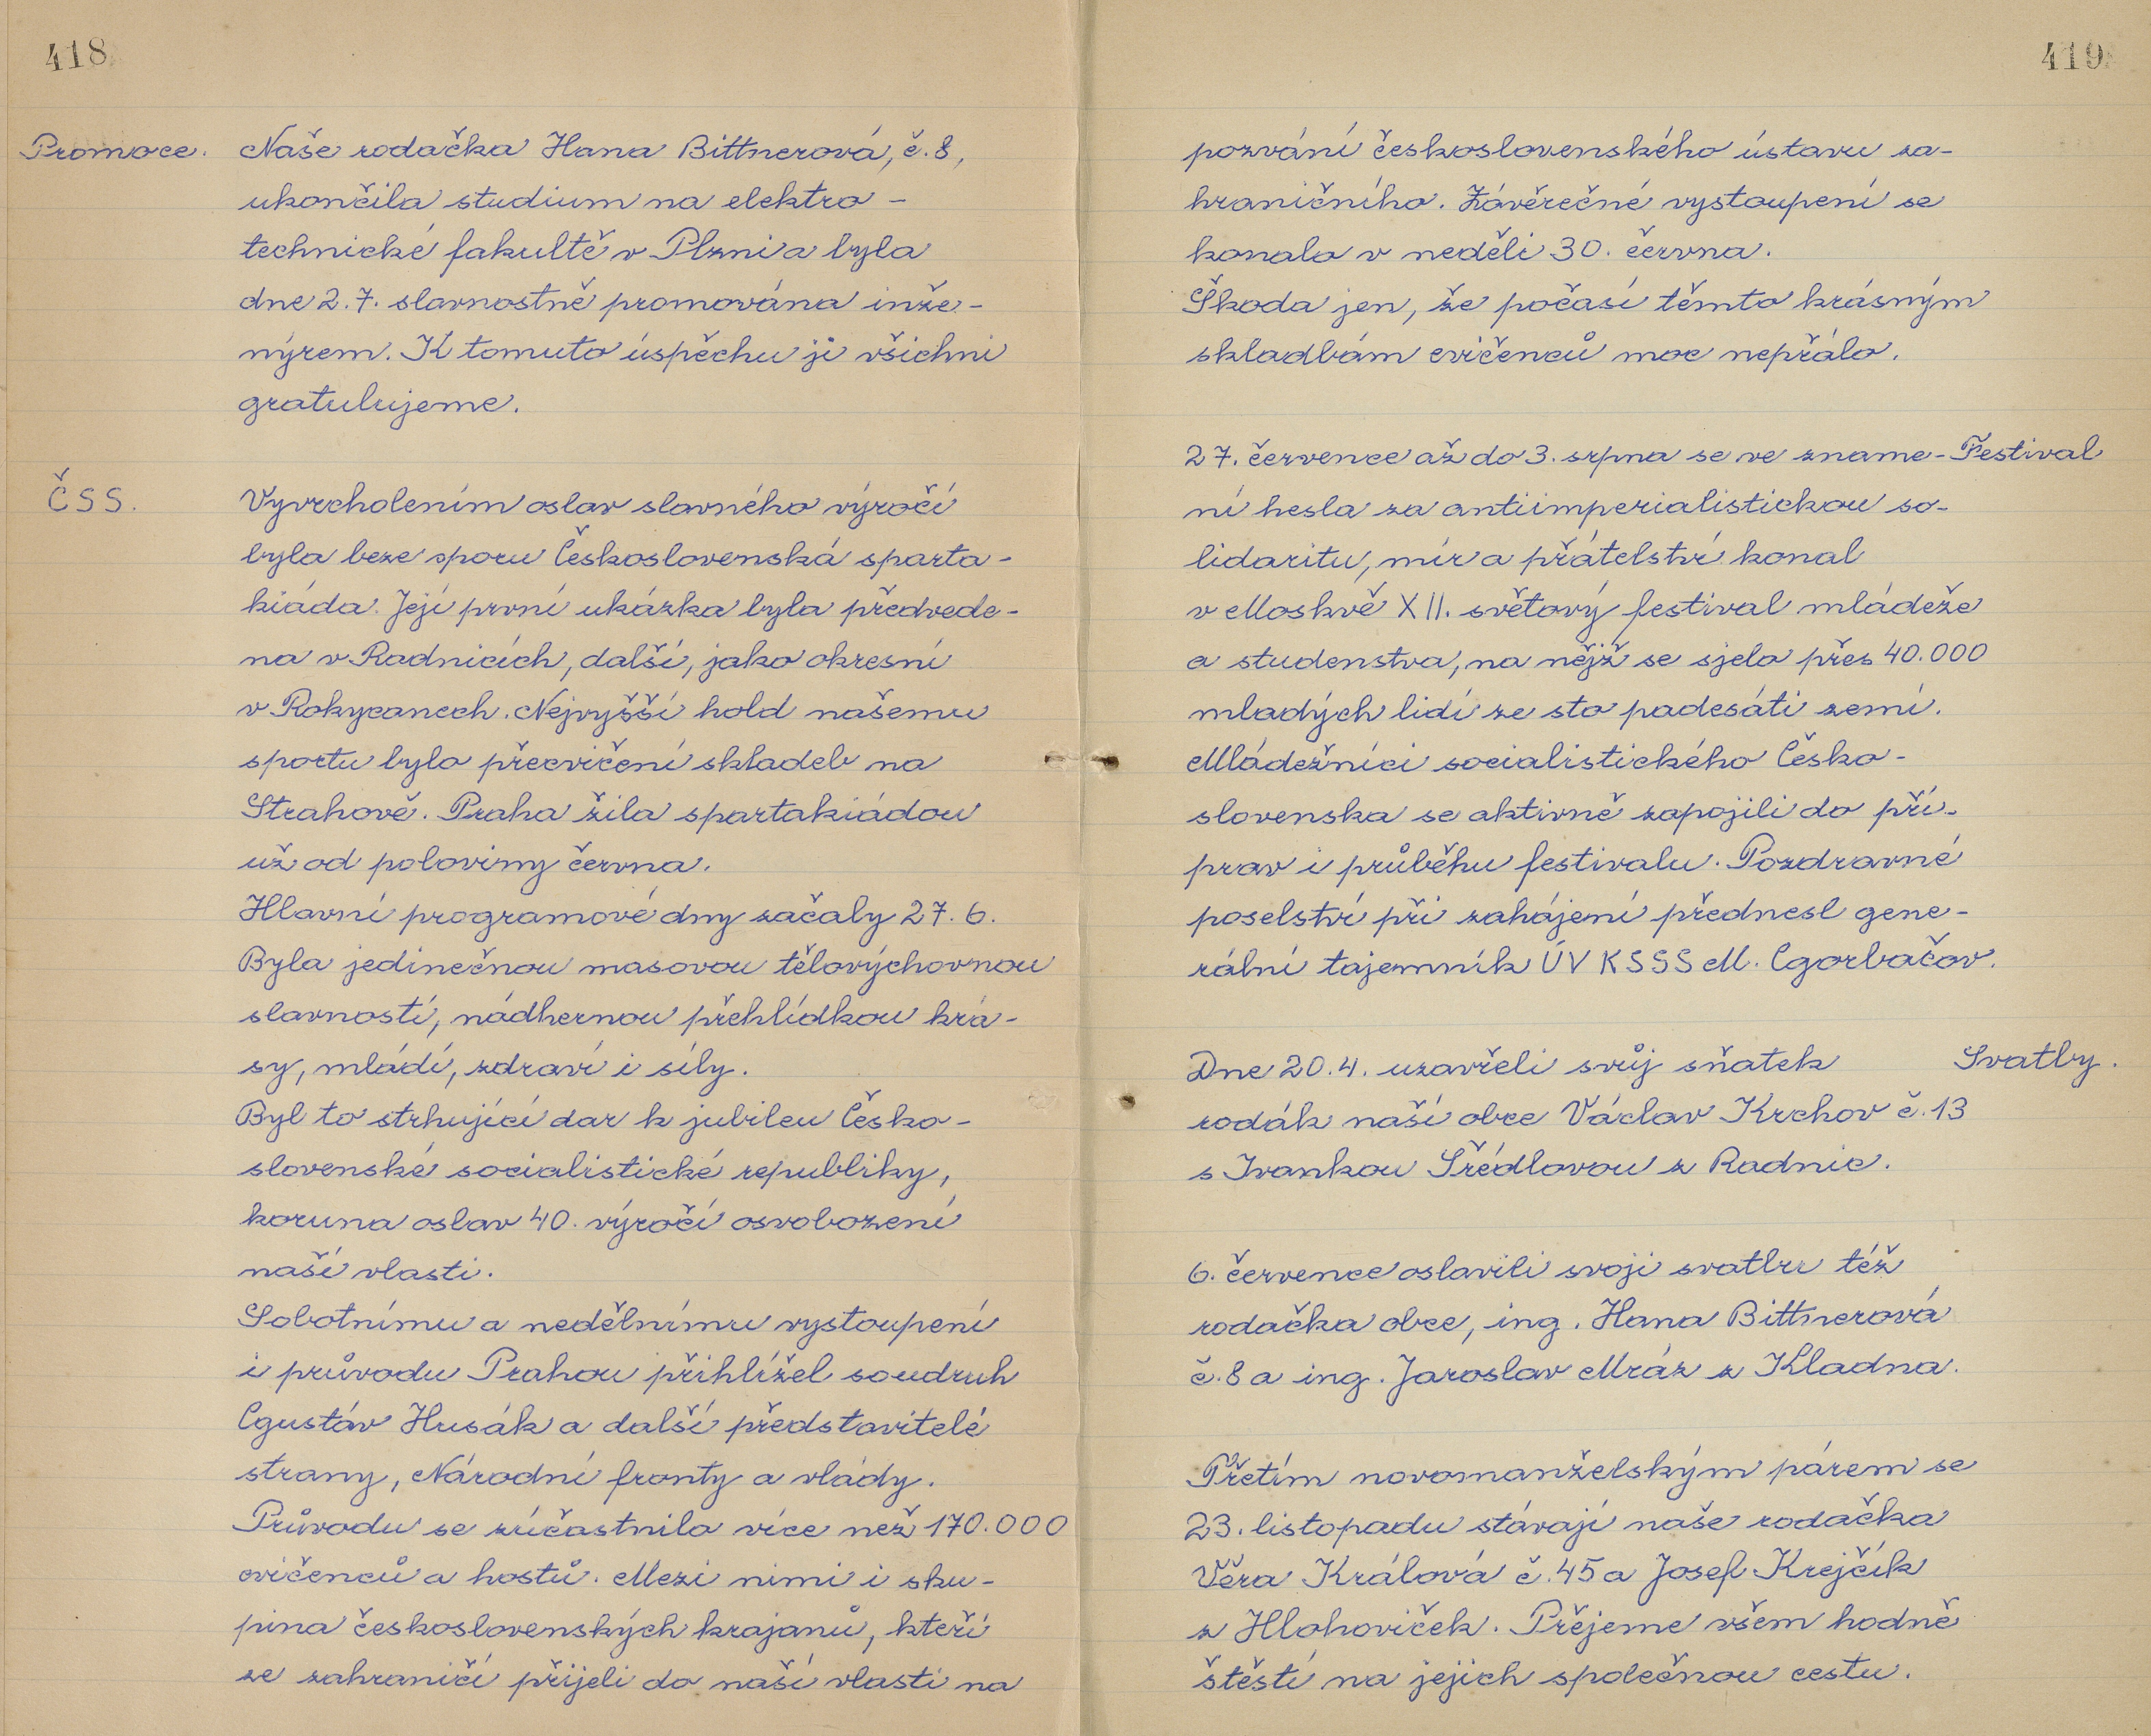 418
Promoce.
Naše rodačka Hana Bittnerová, č. 8,
ukončila studium na elektro-
technické fakultě v Plzni a byla
dne 2. 7. slavnostně promována inže-
nýrem. K tomuto úspěchu jí všichni
gratulujeme.
ČSS.
Vyvrcholením oslav slavného výročí
byla beze sporu Československá sparta-
kiáda. Její první ukázka byla předvede-
na v Radnicích, další, jako okresní
v Rokycanech. Nejvyšší hold našemu
sportu bylo přecvičení skladeb na
Strahově. Praha žila spartakiádou
už od poloviny června.
Hlavní programové dny začaly 27. 6.
Byla jedinečnou masovou tělovýchovnou
slavností, nádhernou přehlídkou krá-
sy, mládí, zdraví i síly.
Byl to strhující dar k jubileu Česko-
slovenské socialistické republiky,
koruna oslav 40. výročí osvobození
naší vlasti.
Sobotnímu a nedělnímu vystoupení
i průvodu Prahou přihlížel soudruh
Gustáv Husák a další představitelé
strany, Národní fronty a vlády.
Průvodu se zúčastnilo více než 170.000
cvičenců a hostů. Mezi nimi i sku-
pina československých krajanů, kteří
ze zahraničí přijeli do naší vlasti na
419
pozvání československého ústavu za-
hraničního. Závěrečné vystoupení se
konalo v neděli 30. června.
Škoda jen, že počasí těmto krásným
skladbám cvičenců moc nepřálo.
27. července až do 3. srpna se ve zname-
Festival
ní hesla za antiimperialistickou so-
lidaritu, mír a přátelství konal
v Moskvě XII. světový festival mládeže
a studenstva, na nějž se sjelo přes 40.000
mladých lidí ze sto padesáti zemí.
Mládežníci socialistického Česko-
slovenska se aktivně zapojili do pří-
prav i průběhu festivalu. Pozdravné
poselství při zahájení přednesl gene-
rální tajemník ÚV KSSS M. Gorbačov.
Dne 20. 4. uzavřeli svůj sňatek
Svatby.
rodák naší obce Václav Krchov č. 13
s Ivankou Šrédlovou z Radnic.
6. července oslavili svoji svatbu též
rodačka obce, ing. Hana Bittnerová
č. 8 a ing. Jaroslav Mráz z Kladna.
Třetím novomanželským párem se
23. listopadu stávají naše rodačka
Věra Králová č. 45 a Josef Krejčík
z Hlohoviček. Přejeme všem hodně
štěstí na jejich společnou cestu.